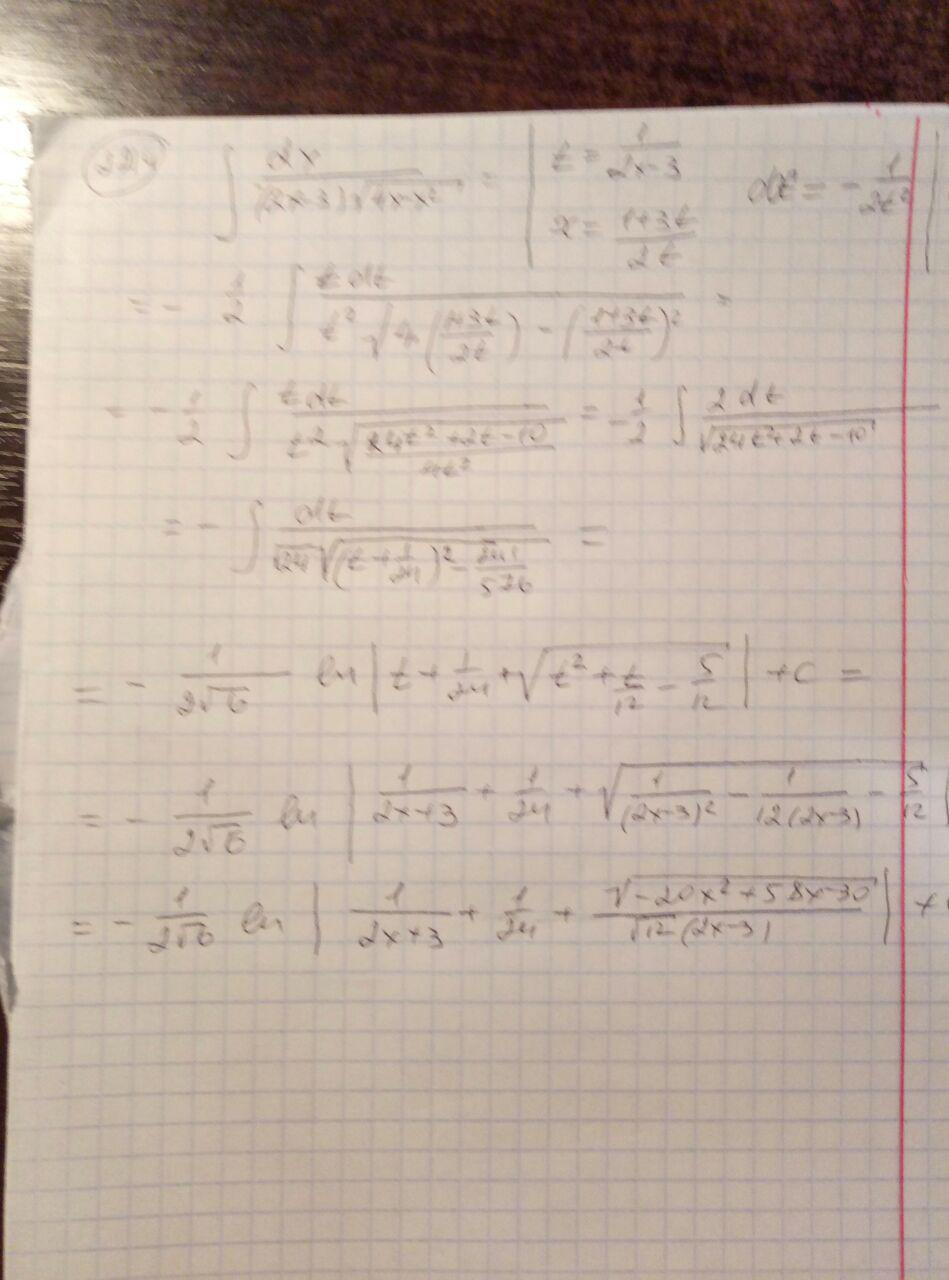 224 ∫ dx / ((2x-3)√(4x-x²)) = | t = 1/(2x-3) dt = - 1/(2t²) |
x = (1+3t)/(2t)
= - 1/2 ∫ t dt / (t² √(4((1+3t)/(2t)) - ((1+3t)/(2t))²)) =
= - 1/2 ∫ t dt / (t² √((24t²+2t-10)/(4t²))) = - 1/2 ∫ 2 dt / √(24t²+2t-10)
= - ∫ dt / (√24 √((t+1/24)² - 241/576)) =
= - 1/(2√6) ln | t + 1/24 + √(t² + t/12 - 5/12) | + C =
= - 1/(2√6) ln | 1/(2x+3) + 1/24 + √(1/(2x-3)² - 1/(12(2x-3)) - 5/12) |
= - 1/(2√6) ln | 1/(2x+3) + 1/24 + √(-20x²+58x-30) / (√12 (2x-3)) | +